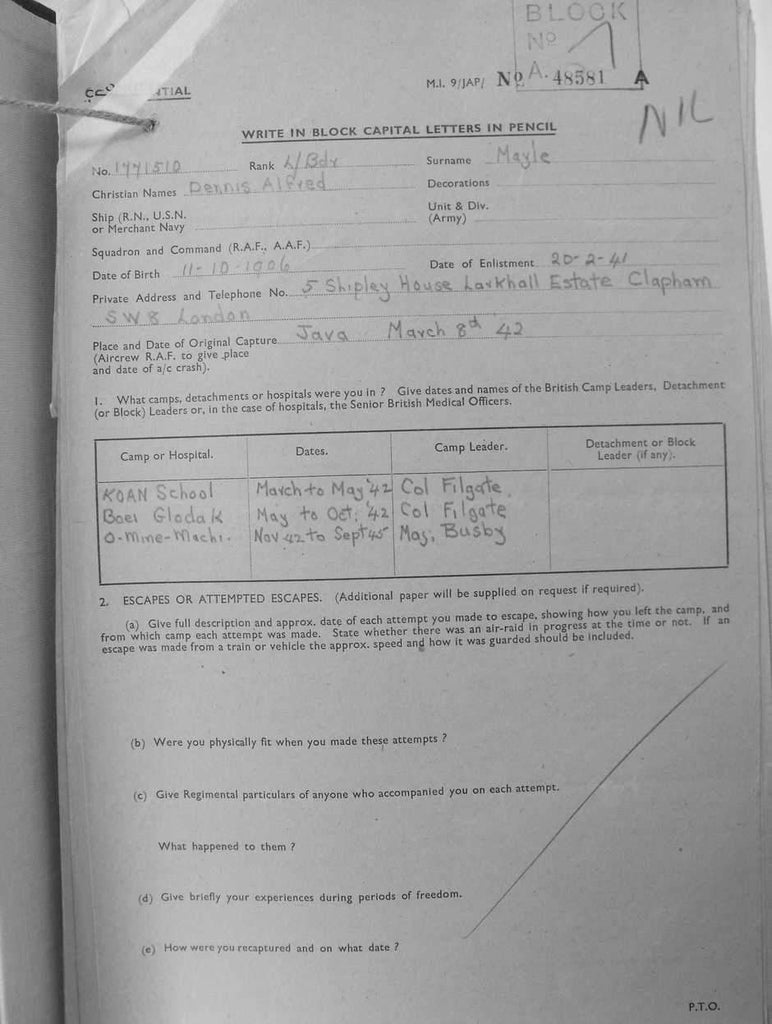 BLOCK
Nº 1
CONFIDENTIAL
M.I. 9/JAP/ Nº A. 48581 A
NIL
WRITE IN BLOCK CAPITAL LETTERS IN PENCIL
No. 1771510 Rank L/Bdr Surname Mayle
Christian Names Dennis Alfred Decorations
Ship (R.N., U.S.N. Unit & Div.
or Merchant Navy (Army)
Squadron and Command (R.A.F., A.A.F.)
Date of Birth 11-10-1906 Date of Enlistment 20-2-41
Private Address and Telephone No. 5 Shipley House Larkhall Estate Clapham
SW8 London
Place and Date of Original Capture Java March 8th 42
(Aircrew R.A.F. to give place
and date of a/c crash).
1. What camps, detachments or hospitals were you in ? Give dates and names of the British Camp Leaders, Detachment
(or Block) Leaders or, in the case of hospitals, the Senior British Medical Officers.
Camp or Hospital. Dates. Camp Leader. Detachment or Block
Leader (if any).
KOAN School March to May '42 Col Filgate.
Boei Glodak May to Oct, '42 Col Filgate
O-Mine-Machi. Nov 42 to Sept 45 Maj, Busby
2. ESCAPES OR ATTEMPTED ESCAPES. (Additional paper will be supplied on request if required).
(a) Give full description and approx. date of each attempt you made to escape, showing how you left the camp, and
from which camp each attempt was made. State whether there was an air-raid in progress at the time or not. If an
escape was made from a train or vehicle the approx. speed and how it was guarded should be included.
(b) Were you physically fit when you made these attempts ?
(c) Give Regimental particulars of anyone who accompanied you on each attempt.
What happened to them ?
(d) Give briefly your experiences during periods of freedom.
(e) How were you recaptured and on what date ?
P.T.O.